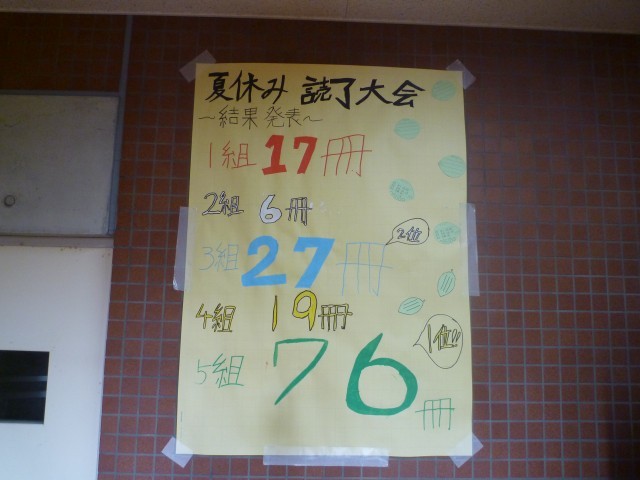 夏休み 読了大会
～結果発表～
1組 17冊
2組 6冊
3組 27冊
2位
4組 19冊
1位!!
5組 76冊